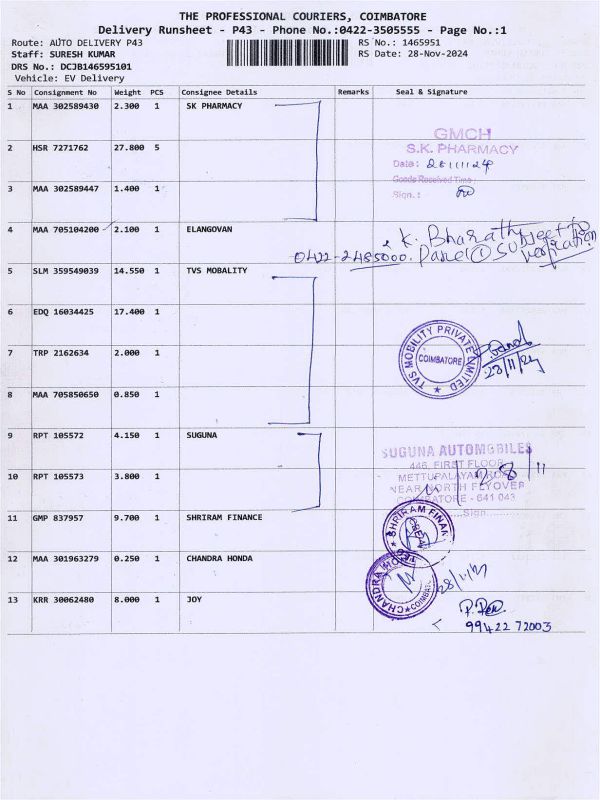 THE PROFESSIONAL COURIERS, COIMBATORE
Delivery Runsheet - P43 - Phone No.:0422-3505555 - Page No.:1
Route: AUTO DELIVERY P43 RS No.: 1465951
Staff: SURESH KUMAR RS Date: 28-Nov-2024
DRS No.: DCJB146595101
Vehicle: EV Delivery
S No Consignment No Weight PCS Consignee Details Remarks Seal & Signature
1 MAA 302589430 2.300 1 SK PHARMACY
GMCH
S.K. PHARMACY
2 HSR 7271762 27.800 5
Date: 28/11/24
Goods Received Time
3 MAA 302589447 1.400 1
Sign.:
4 MAA 705104200 2.100 1 ELANGOVAN
K. Bharath
0422-2485000.
5 SLM 359549039 14.550 1 TVS MOBALITY
6 EDQ 16034425 17.400 1
7 TRP 2162634 2.000 1
TVS MOBILITY PRIVATE LIMITED
COIMBATORE
28/11/24
8 MAA 705850650 0.850 1
9 RPT 105572 4.150 1 SUGUNA
SUGUNA AUTOMOBILES
446, FIRST FLOOR
METTUPALAYAM ROAD
28/11
10 RPT 105573 3.800 1
NEAR NORTH FLYOVER
COIMBATORE - 641 043
Sign
11 GMP 837957 9.700 1 SHRIRAM FINANCE
SHRIRAM FINAN
12 MAA 301963279 0.250 1 CHANDRA HONDA
CHANDRA
13 KRR 30062480 8.000 1 JOY
99422 72003